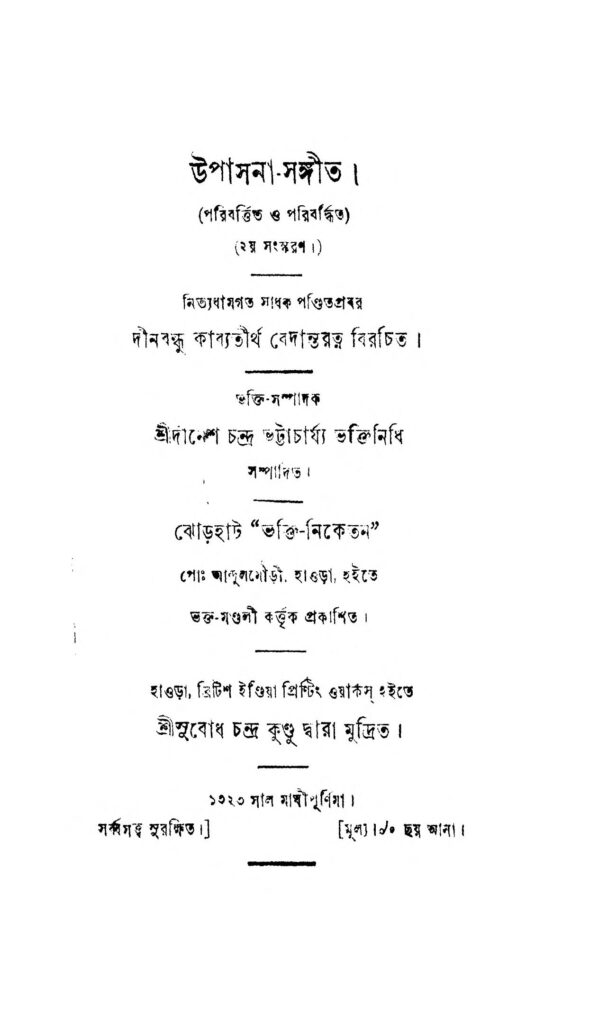 উপাসনা-সঙ্গীত।
(পরিবর্ত্তিত ও পরিবর্দ্ধিত)
(২য় সংস্করণ।)
নিত্যধামগত সাধক পণ্ডিতপ্রবর
দীনবন্ধু কাব্যতীর্থ বেদান্তরত্ন বিরচিত।
ভক্তি-সম্পাদক
শ্রীদীনেশ চন্দ্র ভট্টাচার্য্য ভক্তিনিধি
সম্পাদিত।
ঝোড়হাট “ভক্তি-নিকেতন”
পোঃ আন্দুলমৌড়ী, হাওড়া, হইতে
ভক্ত-মণ্ডলী কর্ত্তৃক প্রকাশিত।
হাওড়া, ব্রিটিশ ইণ্ডিয়া প্রিণ্টিং ওয়ার্কস্ হইতে
শ্রীসুবোধ চন্দ্র কুণ্ডু দ্বারা মুদ্রিত।
১৩২৩ সাল মাঘীপূর্ণিমা।
সর্ব্বসত্ত্ব সুরক্ষিত।] [মূল্য।৵৹ ছয় আনা।